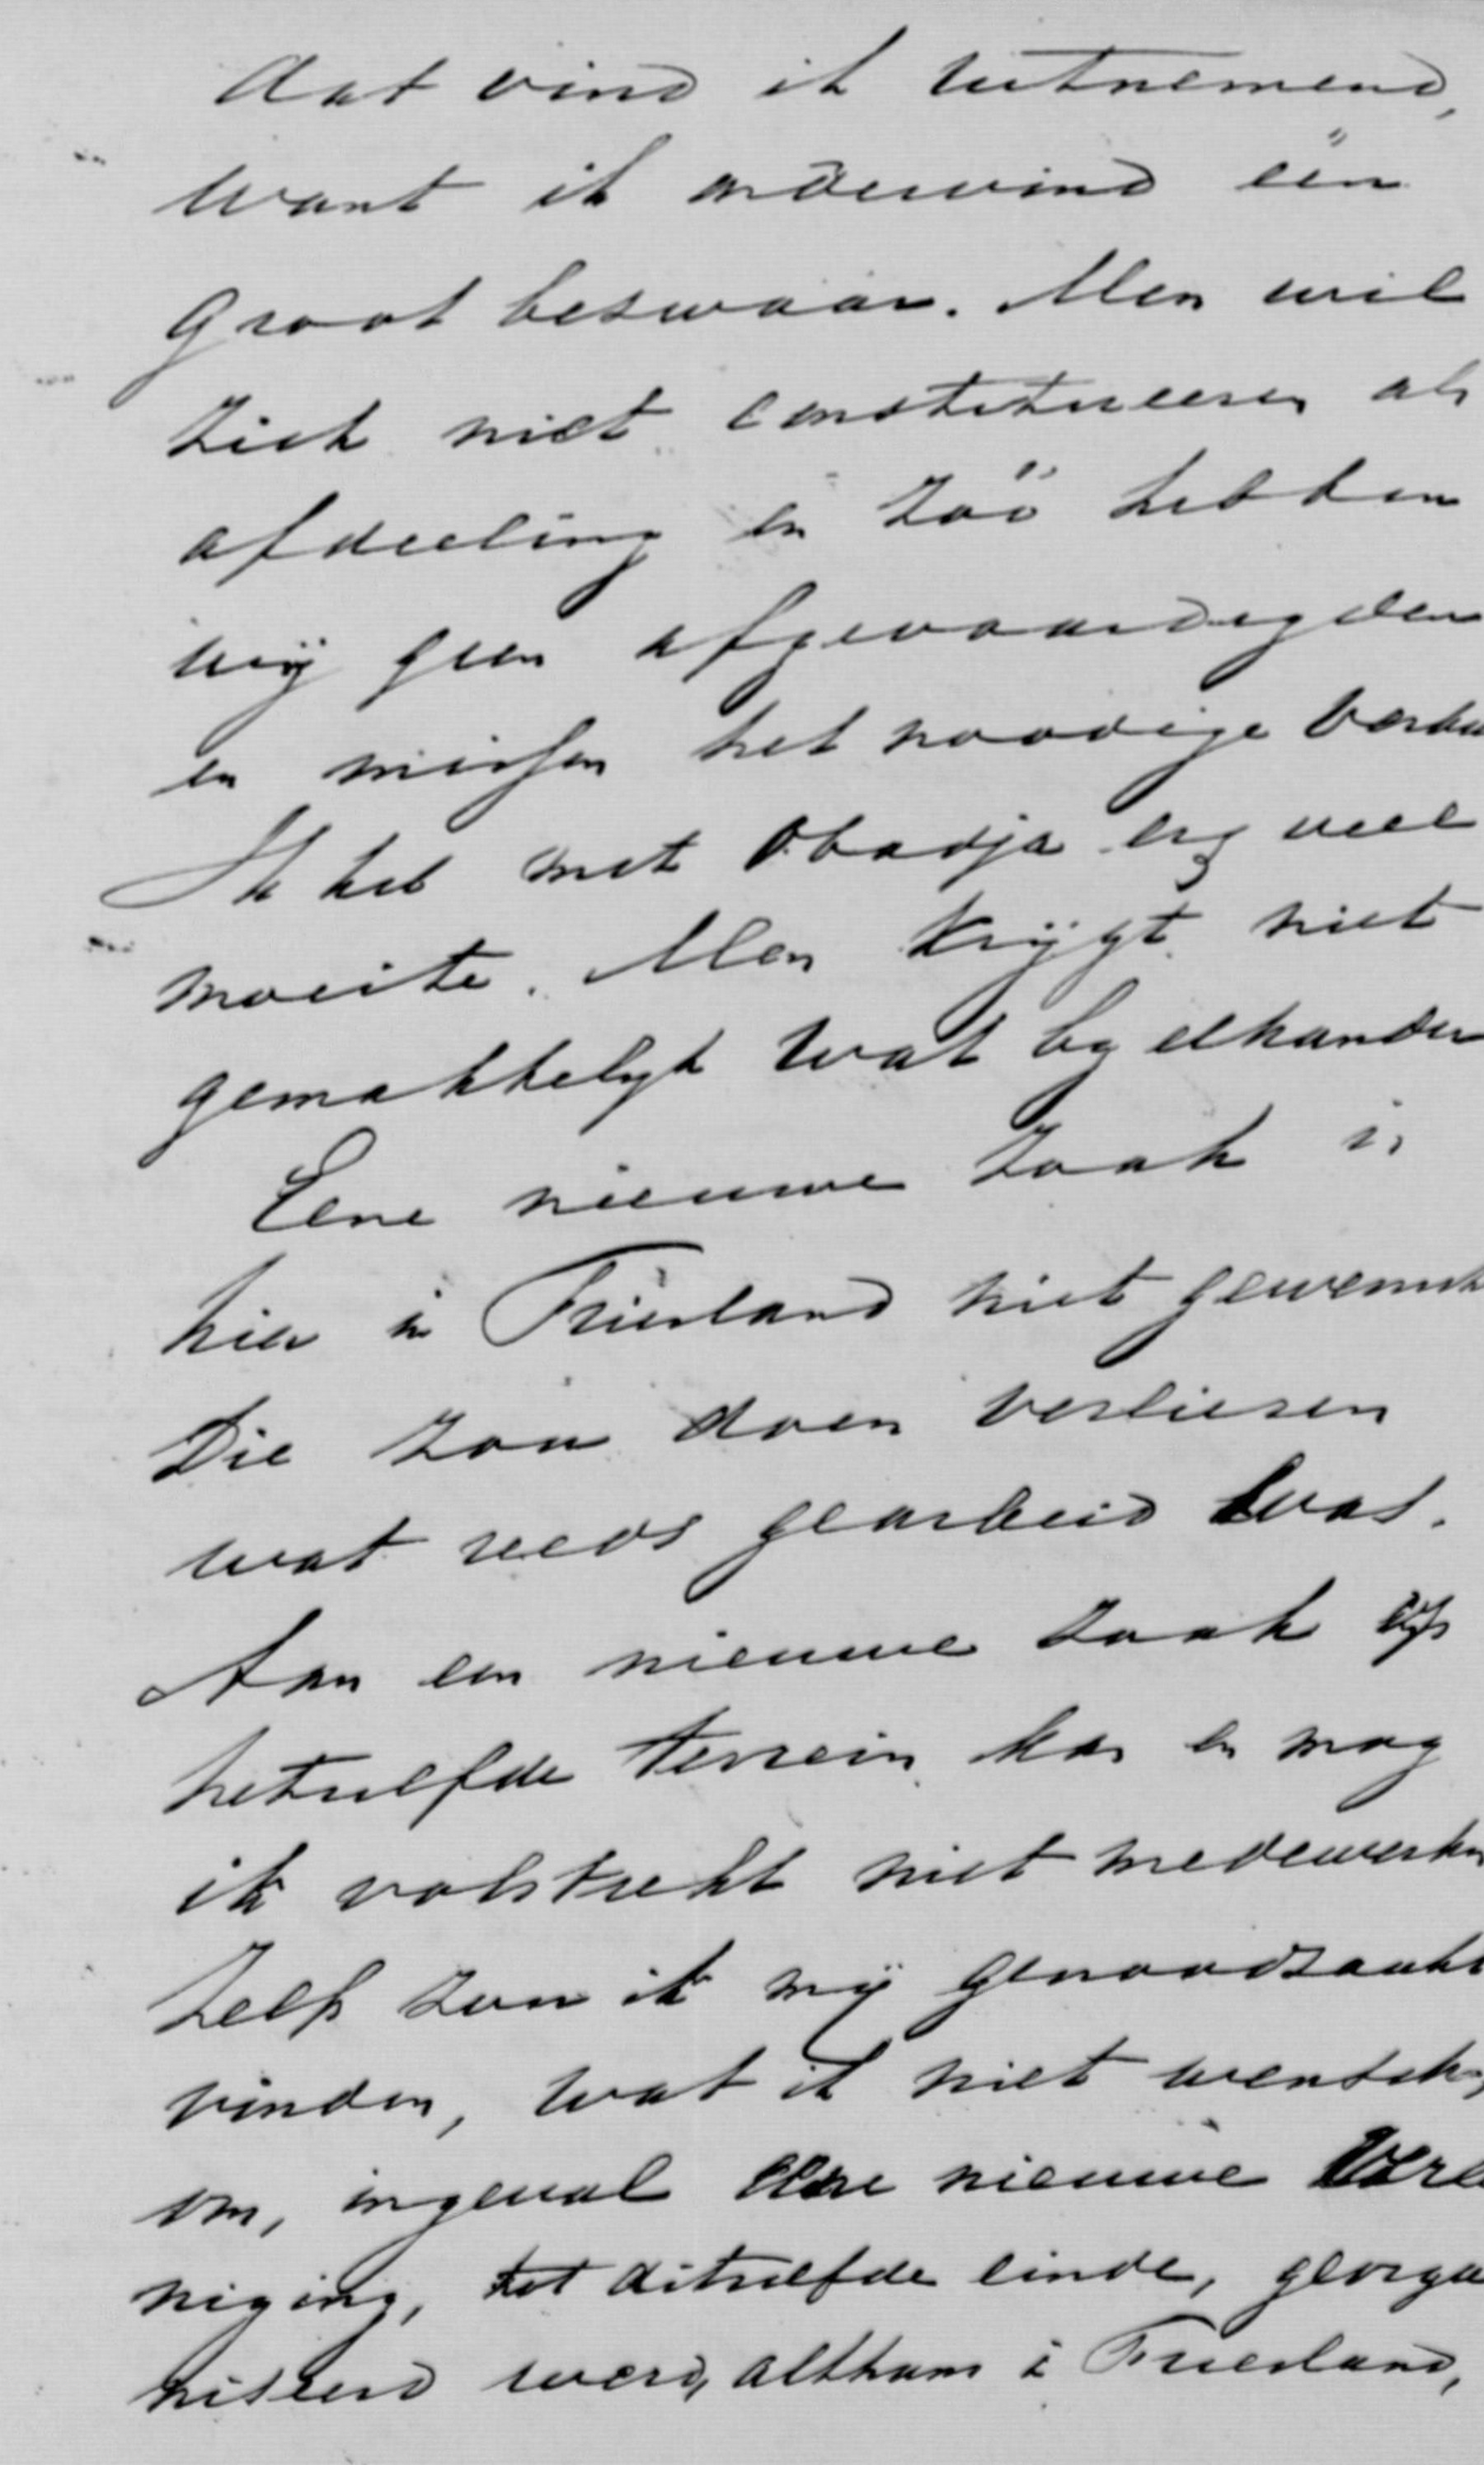 dat vind ik uitnemend,
want ik ondervind één
groot bezwaar. Men wil
zich niet constitueeren als
afdeeling en zóó hebben
wij geen afgevaardigden
en missen het noodige
Ik heb met Obadja erg veel
moeite. Men krijgt niet
gemakkelijk wat by elkander
Eene nieuwe zaak is
hier in Friesland niet gewenscht
Die zou doen verliezen
wat reeds gearbeid was.
Aan een nieuwe zaak op
hetzelfde terrein kan en mag
ik volstrekt niet medewerken
Zelfs zou ik mij genoodzaakt
vinden, wat ik niet wensch,
om, ingeval eene nieuwe Veree
niging, tot ditzelfde einde, georga
niseerd werd, althans in Friesland,